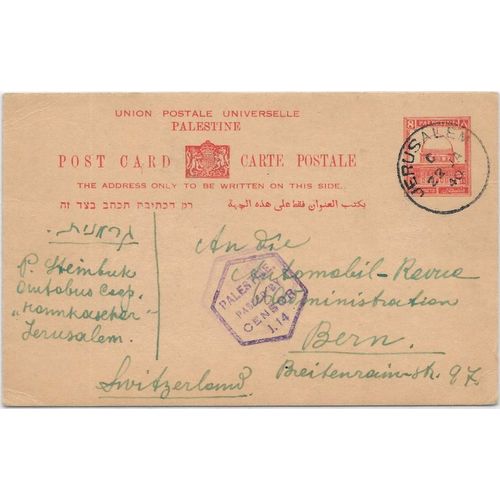 UNION POSTALE UNIVERSELLE
PALESTINE
POST CARD CARTE POSTALE
THE ADDRESS ONLY TO BE WRITTEN ON THIS SIDE.
רק הכתיבת תכתב בצד זה
يكتب العنوان فقط على هذه الجهة
JERUSALEM
C
22
40
גרמנית
P. Steinbuk
Autobus Coop.
"Hamkascher"
Jerusalem.
An die
Automobil-Revue
Administration
Bern.
Breitenrain-str. 97.
Switzerland.
PALESTINE
PASSED BY
CENSOR
I.14